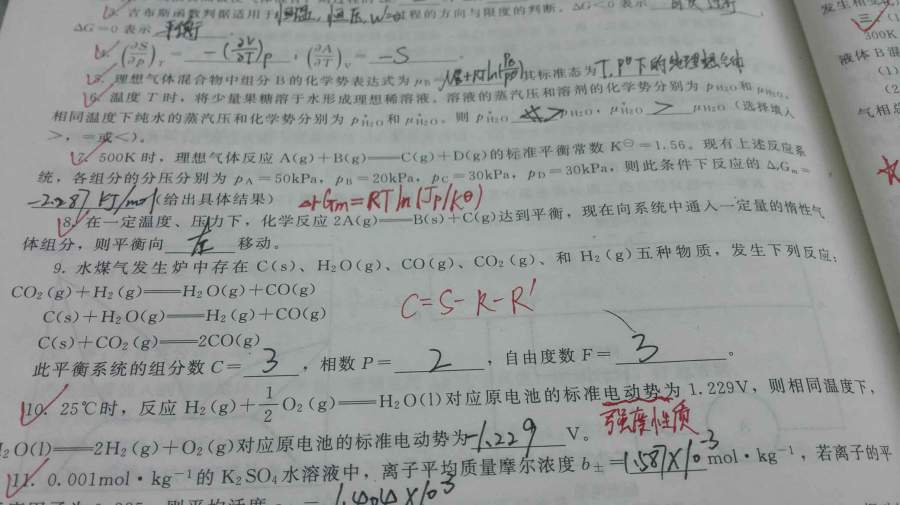 2. 吉布斯函数判据适用于恒温, 恒压, W'=0过程的方向与限度的判断。ΔG<0 表示
ΔG=0 表示 平衡
(∂S/∂p)T = -(∂V/∂T)p ，(∂A/∂T)V = -S 。
5. 理想气体混合物中组分 B 的化学势表达式为 μB= 其标准态为 T, pθ下的纯理想气体
6. 温度 T 时，将少量果糖溶于水形成理想稀溶液。溶液的蒸汽压和溶剂的化学势分别为 pH2O和 μH2O。
相同温度下纯水的蒸汽压和化学势分别为 p*H2O和 μ*H2O。则 p*H2O > pH2O，μ*H2O > μH2O (选择填入
>，=或<)。
7. 500K 时，理想气体反应 A(g)+B(g)══C(g)+D(g)的标准平衡常数 K⊖=1.56。现有上述反应系
统，各组分的分压分别为 pA=50kPa，pB=20kPa，pC=30kPa，pD=30kPa，则此条件下反应的 ΔrGm=
-2.287 kJ/mol (给出具体结果) ΔrGm=RTln(Jp/Kθ)
8. 在一定温度、压力下，化学反应 2A(g)══B(s)+C(g)达到平衡，现在向系统中通入一定量的惰性气
体组分，则平衡向 左 移动。
9. 水煤气发生炉中存在 C(s)、H2O(g)、CO(g)、CO2(g)、和 H2(g)五种物质，发生下列反应：
CO2(g)+H2(g)══H2O(g)+CO(g)
C=S-R-R'
C(s)+H2O(g)══H2(g)+CO(g)
C(s)+CO2(g)══2CO(g)
此平衡系统的组分数 C= 3 ，相数 P= 2 ，自由度数 F= 3 。
10. 25℃时，反应 H2(g)+1/2O2(g)══H2O(l)对应原电池的标准电动势为 1.229V，则相同温度下，
强度性质
2O(l)══2H2(g)+O2(g)对应原电池的标准电动势为 -1.229 V。
11. 0.001mol·kg-1的 K2SO4水溶液中，离子平均质量摩尔浓度 b±= 1.587×10-3 mol·kg-1，若离子的平
发生相变
三、(1
300K
液体 B 混
(1)
(2
气相总